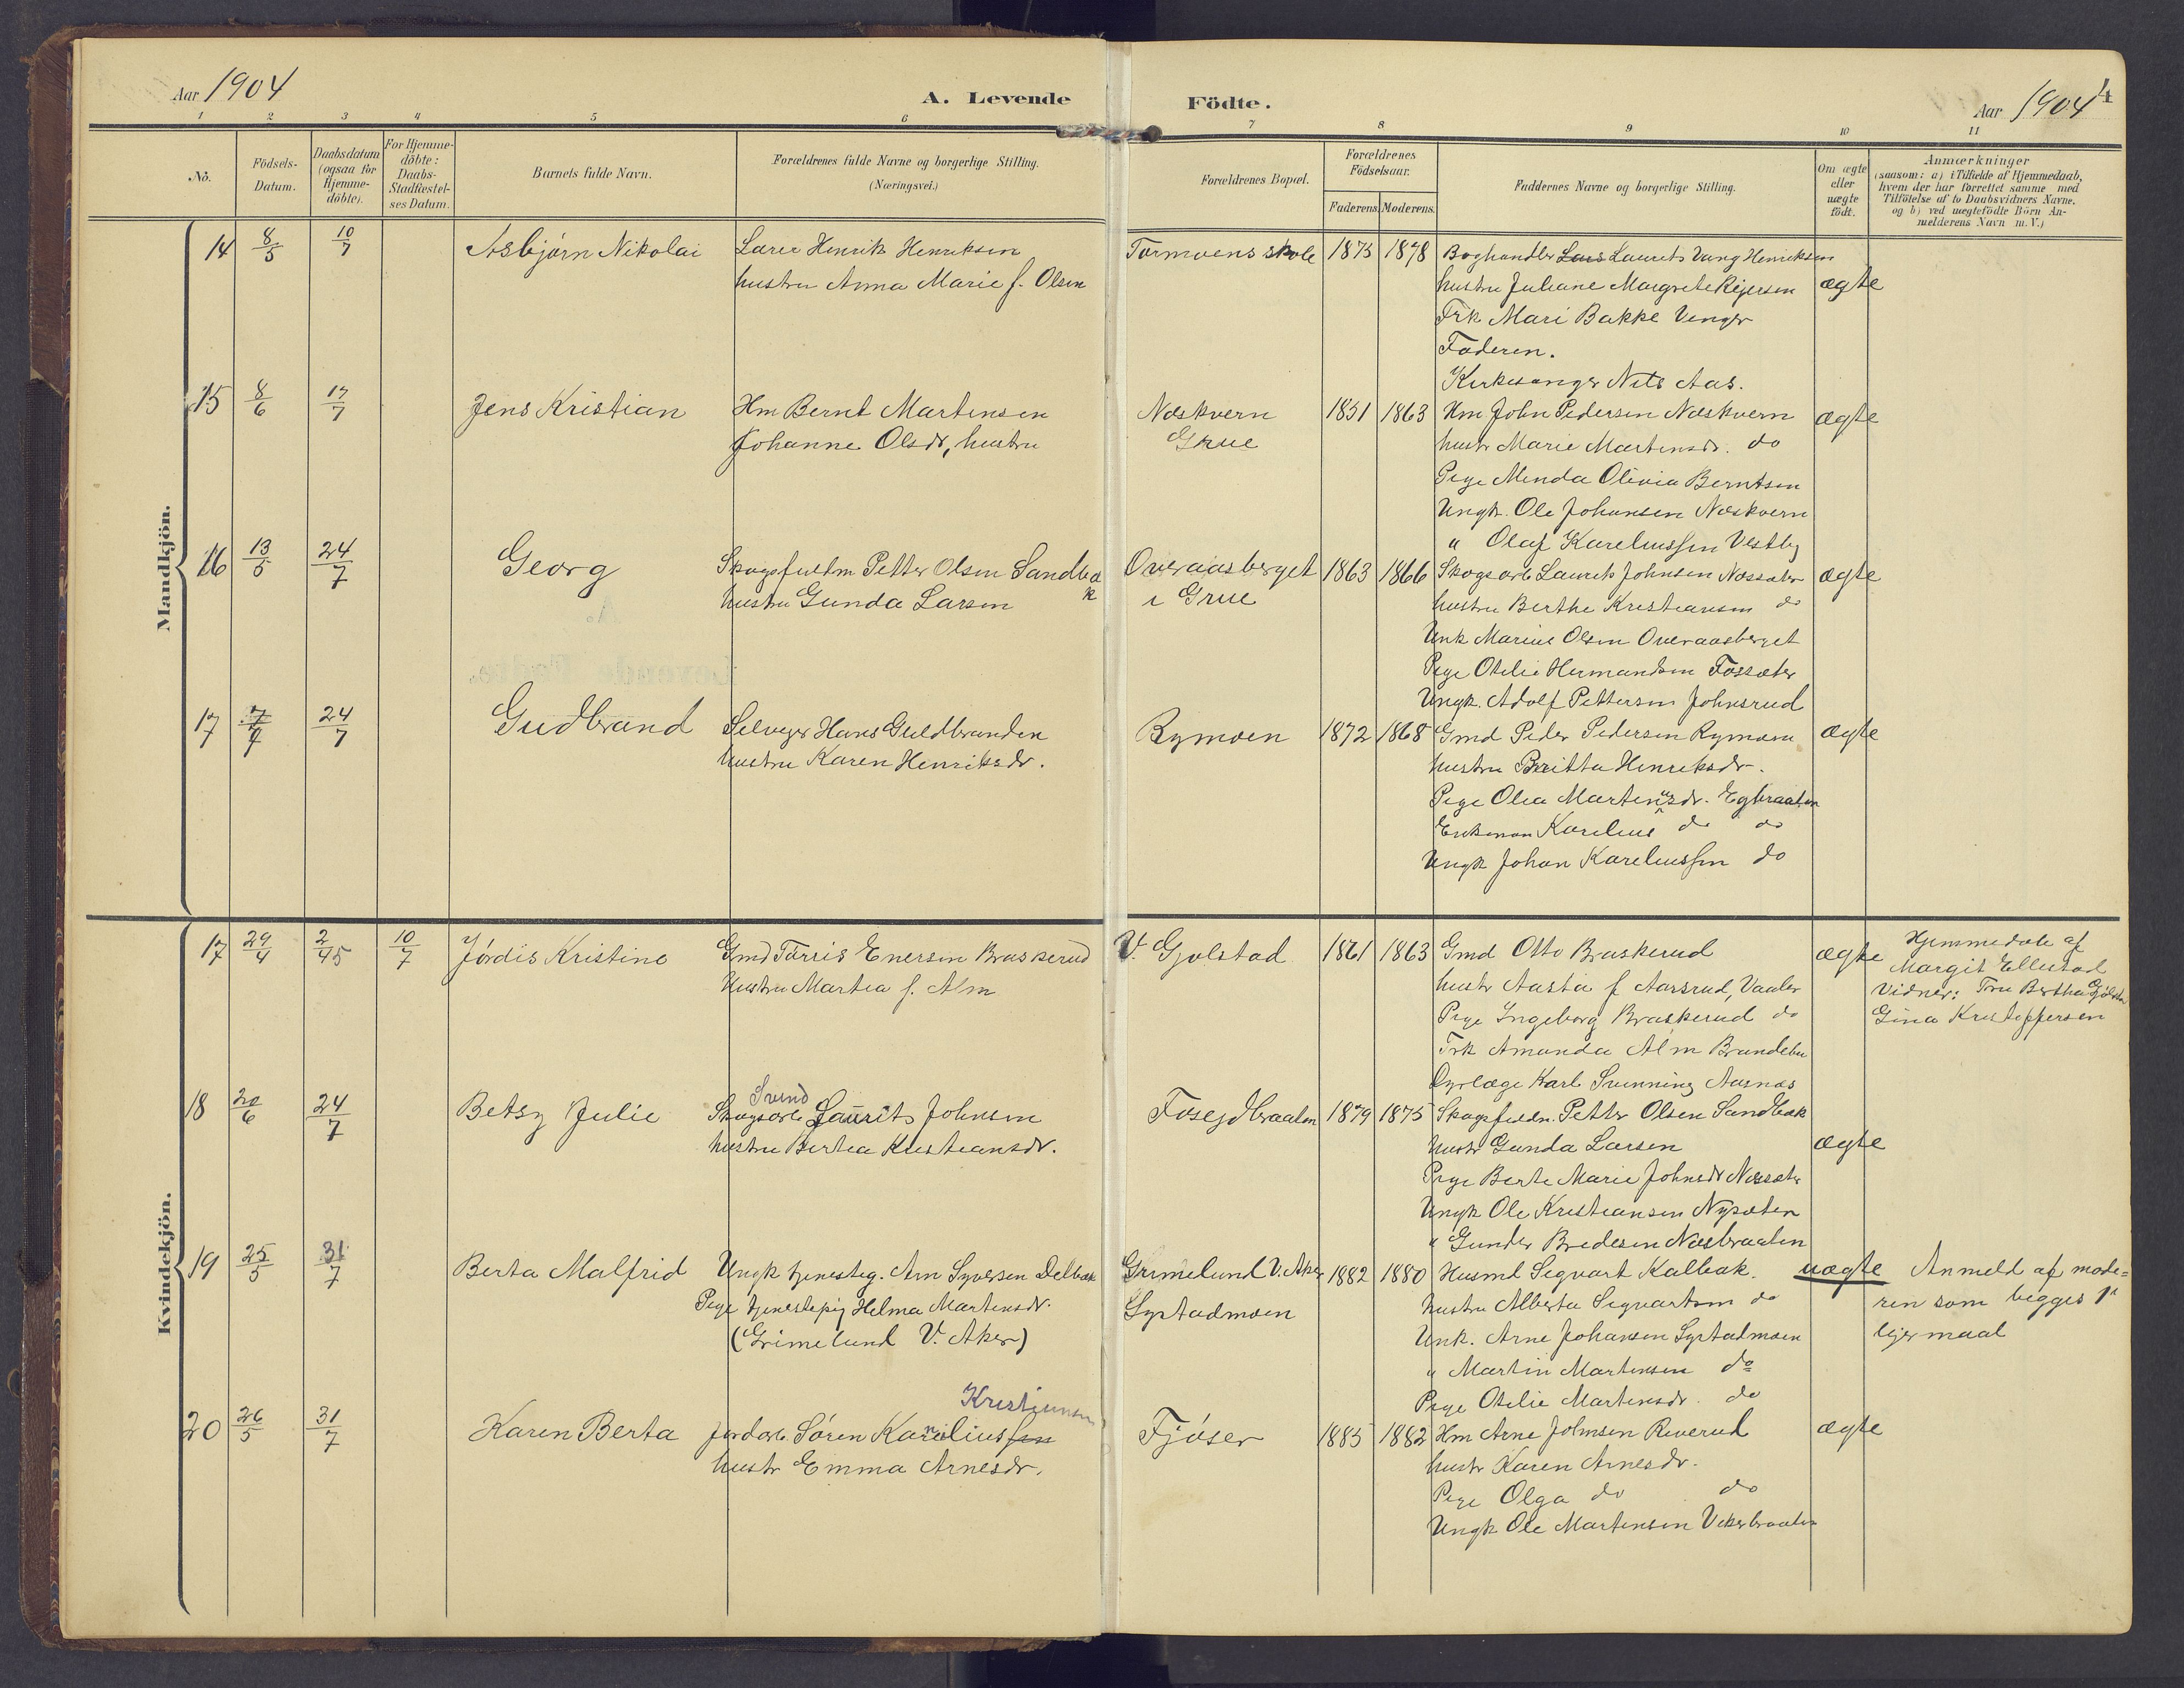 Aar 1904
A. Levende Födte.
Aar 1904
4
1 2 3 4 5 6 7 8 9 10 11
No.
Födsels-
Datum.
Daabsdatum
(ogsaa for
Hjemme-
döbte).
For Hjemme-
döbte:
Daabs-
Stadfæstel-
ses Datum.
Barnets fulde Navn.
Forældrenes fulde Navne og borgerlige Stilling.
(Næringsvei.)
Forældrenes Bopæl.
Forældrenes
Födselsaar.
Faderens. Moderens.
Faddernes Navne og borgerlige Stilling.
Om ægte
eller
uægte
födt.
Anmærkninger
(saasom: a) i Tilfælde af Hjemmedaab,
hvem der har forrettet samme med
Tilföielse af to Daabsvidners Navne,
og b) ved uægtefödte Börn An-
melderens Navn m. V.)
Mandkjön.
14 8/5 10/7 Asbjørn Nikolai
Lærer Henrik Henriksen
hustru Anna Marie f. Olsen
Tormoens skole 1875 1878
Boghandler Lars Laurits Vang Henriksen
hustru Juliane Margrete
Frk Mari Bakke Venger
Faderen.
Kirkesanger Nils Aas.
ægte
15 8/6 17/7 Jens Kristian
Hm Bernt Martinsen
Johanne Olsdr, hustru
Næskvern
Grue
1851 1863
Hm John Pedersen Næskvern
hustr Marie Martinsdr. do
Pige Menda Olivia Berntsen
Ungk. Ole Johansen Næskvern
" Olaf Kareliussen Vestby
ægte
16 13/5 24/7 Georg
Skogsfuldm Petter Olsen Sandbæk
hustru Gunda Larsen
Overaasberget
i Grue
1863 1866
Skogsarb Laurits Johnsen Næssæter
hustru Berthe Kristiansen do
Unk Marius Olsen Overaasberget
Pige Otelie Hermandsen Fossæter
Ungk. Adolf Pettersen Johnsrud
ægte
17 7/7 24/7 Gudbrand
Selveger Hans Guldbrandsen
hustru Karen Henriksdr.
Rymoen 1872 1868
Gmd Peder Pedersen Rymoen
hustru Britta Henriksdr.
Pige Olea Martinusdr.
Enkeman Karelius do do
Ungk Johan Kareliussen do
ægte
Kvindekjön.
17 29/4 2/45 10/7 Jórdis Kristine
Gmd Tørris Enersen Braskerud
Hustru Martea f. Alm
V. Gjolstad 1861 1863
Gmd Otto Braskerud
hustr Aasta f Aarsrud, Vaaler
Pige Ingeborg Braskerud do
Frk Amanda Alm Brandebu
Dyrlæge Karl Svenning Aasnæs
ægte
Hjemmedøbt af
Margit Ellestad
Vidner: Fru Bertha Gjølsta
Gina Kristoffersen
18 20/6 24/7 Betsy Julie
Svend
Skogsarb. Laurits Johnsen
hustru Bertea Kristiansdr.
1879 1875
Skogsfuldm. Petter Olsen Sandbæk
hustr Gunda Larsen
Pige Berte Marie Johnsdr Næssæter
Ungk Ole Kristiansen Nysæter
" Gunder Bredesen Næsbraaten
ægte
19 25/5 31/7 Berta Malfrid
Ungk tjenesteg. Arn Syversen Delbæk
Pige tjenestepig Helma Martinsdr.
(Grimelund V. Aker)
Grimelund V. Aker
Systadmoen
1882 1880
Husmd Segvart Kalbak.
hustru Alberta Segvartsen do
Unk. Arne Johansen Systadmoen
" Martin Martinsen do
Pige Otelie Martinsdr. do
uægte
Anmeld af mode=
ren som begges 1'
leiermaal
20 26/5 31/7 Karen Berta
Kristiansen
Jordarb. Søren Kareliussen
hustr Emma Arnesdr.
Fjóser 1885 1882
Hm Arne Johnsen Riverud
hustr Karen Arnesdr.
Pige Olga do do
Ungk Ole Martinsen
ægte